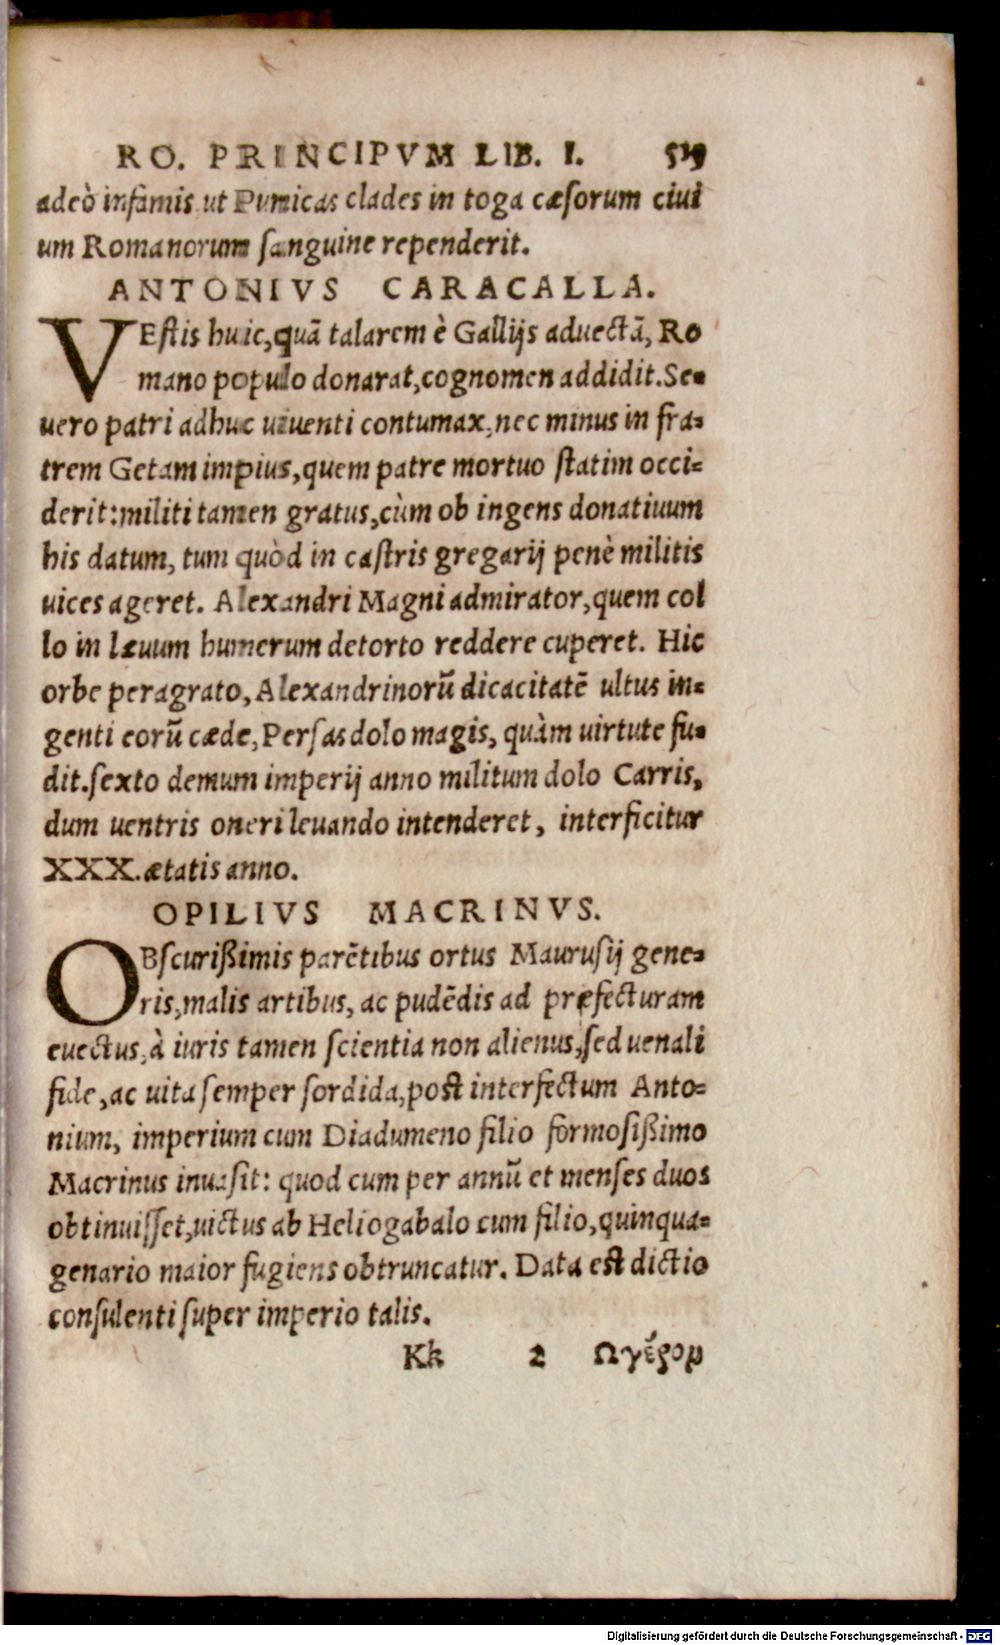 RO. PRINCIPVM LIB. I. 515
adeò infamis ut Punicas clades in toga cæſorum ciui
um Romanorum ſanguine rependerit.
ANTONIVS CARACALLA.
VEſtis huic, quā talarem è Gallijs aduectā, Ro
mano populo donarat, cognomen addidit. Se-
uero patri adhuc uiuenti contumax, nec minus in fra-
trem Getam impius, quem patre mortuo ſtatim occi-
derit: militi tamen gratus, cùm ob ingens donatiuum
his datum, tum quòd in caſtris gregarij penè militis
uices ageret. Alexandri Magni admirator, quem col
lo in læuum humerum detorto reddere cuperet. Hic
orbe peragrato, Alexandrinorū dicacitatē ultus in-
genti eorū cæde, Perſas dolo magis, quàm uirtute fu-
dit. ſexto demum imperij anno militum dolo Carris,
dum uentris oneri leuando intenderet, interficitur
XXX. ætatis anno.
OPILIVS MACRINVS.
OBſcurißimis parētibus ortus Mauruſij gene-
ris, malis artibus, ac pudēdis ad præfecturam
euectus, à iuris tamen ſcientia non alienus, ſed uenali
fide, ac uita ſemper ſordida, poſt interfectum Anto-
nium, imperium cum Diadumeno filio formoſißimo
Macrinus inuaſit: quod cum per annū et menſes duos
obtinuiſſet, uictus ab Heliogabalo cum filio, quinqua-
genario maior fugiens obtruncatur. Data eſt dictio
conſulenti ſuper imperio talis.
Kk 2 Ω γέρον
Digitalisierung gefördert durch die Deutsche Forschungsgemeinschaft - DFG